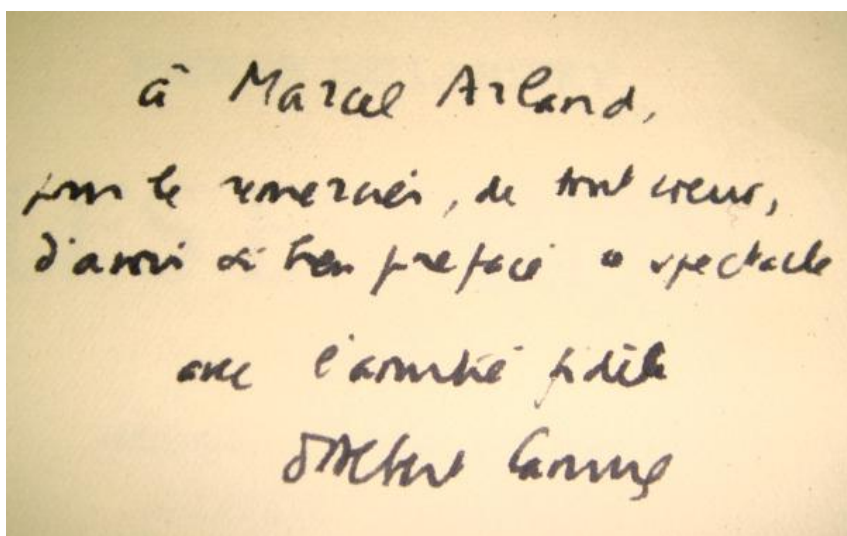 à Marcel Arland,
pour le remercier, de tout coeur,
d'avoir si bien préfacé ce spectacle
avec l'amitié fidèle
d'Albert Camus